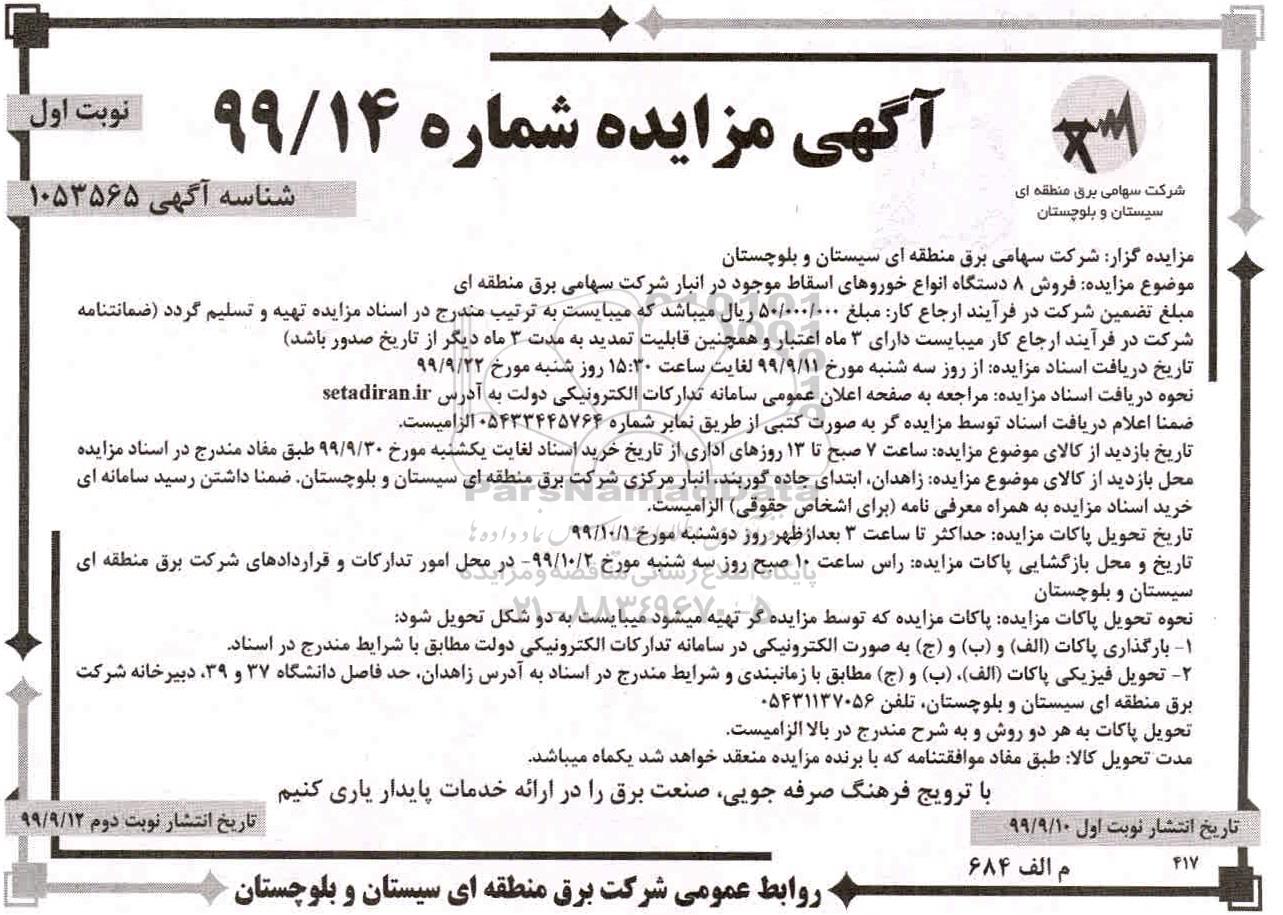 نوبت اول
آگهی مزایده شماره ۹۹/۱۴
شناسه آگهی ۱۰۵۳۵۶۵
شرکت سهامی برق منطقه ای
سیستان و بلوچستان
مزایده گزار: شرکت سهامی برق منطقه ای سیستان و بلوچستان
موضوع مزایده: فروش ۸ دستگاه انواع خوروهای اسقاط موجود در انبار شرکت سهامی برق منطقه ای
مبلغ تضمین شرکت در فرآیند ارجاع کار: مبلغ ۵۰/۰۰۰/۰۰۰ ریال میباشد که میبایست به ترتیب مندرج در اسناد مزایده تهیه و تسلیم گردد (ضمانتنامه
شرکت در فرآیند ارجاع کار میبایست دارای ۳ ماه اعتبار و همچنین قابلیت تمدید به مدت ۳ ماه دیگر از تاریخ صدور باشد)
تاریخ دریافت اسناد مزایده: از روز سه شنبه مورخ ۹۹/۹/۱۱ لغایت ساعت ۱۵:۳۰ روز شنبه مورخ ۹۹/۹/۲۲
نحوه دریافت اسناد مزایده: مراجعه به صفحه اعلان عمومی سامانه تدارکات الکترونیکی دولت به آدرس setadiran.ir
ضمنا اعلام دریافت اسناد توسط مزایده گر به صورت کتبی از طریق نمابر شماره ۰۵۴۳۳۴۴۵۷۶۴ الزامیست.
تاریخ بازدید از کالای موضوع مزایده: ساعت ۷ صبح تا ۱۳ روزهای اداری از تاریخ خرید اسناد لغایت یکشنبه مورخ ۹۹/۹/۳۰ طبق مفاد مندرج در اسناد مزایده
محل بازدید از کالای موضوع مزایده: زاهدان، ابتدای جاده گوربند، انبار مرکزی شرکت برق منطقه ای سیستان و بلوچستان. ضمنا داشتن رسید سامانه ای
خرید اسناد مزایده به همراه معرفی نامه (برای اشخاص حقوقی) الزامیست.
تاریخ تحویل پاکات مزایده: حداکثر تا ساعت ۳ بعدازظهر روز دوشنبه مورخ ۹۹/۱۰/۱
تاریخ و محل بازگشایی پاکات مزایده: راس ساعت ۱۰ صبح روز سه شنبه مورخ ۹۹/۱۰/۲- در محل امور تدارکات و قراردادهای شرکت برق منطقه ای
سیستان و بلوچستان
نحوه تحویل پاکات مزایده: پاکات مزایده که توسط مزایده گر تهیه میشود میبایست به دو شکل تحویل شود:
۱- بارگذاری پاکات (الف) و (ب) و (ج) به صورت الکترونیکی در سامانه تدارکات الکترونیکی دولت مطابق با شرایط مندرج در اسناد.
۲- تحویل فیزیکی پاکات (الف)، (ب) و (ج) مطابق با زمانبندی و شرایط مندرج در اسناد به آدرس زاهدان، حد فاصل دانشگاه ۳۷ و ۳۹، دبیرخانه شرکت
برق منطقه ای سیستان و بلوچستان، تلفن ۰۵۴۳۱۱۳۷۰۵۶
تحویل پاکات به هر دو روش و به شرح مندرج در بالا الزامیست.
مدت تحویل کالا: طبق مفاد موافقتنامه که با برنده مزایده منعقد خواهد شد یکماه میباشد.
با ترویج فرهنگ صرفه جویی، صنعت برق را در ارائه خدمات پایدار یاری کنیم
تاریخ انتشار نوبت اول ۹۹/۹/۱۰
تاریخ انتشار نوبت دوم ۹۹/۹/۱۲
۴۱۷
م الف ۶۸۴
روابط عمومی شرکت برق منطقه ای سیستان و بلوچستان
ParsNamadData
پایگاه اطلاع رسانی مناقصه و مزایده
۰۲۱-۸۸۳۴۹۶۷۰-۵